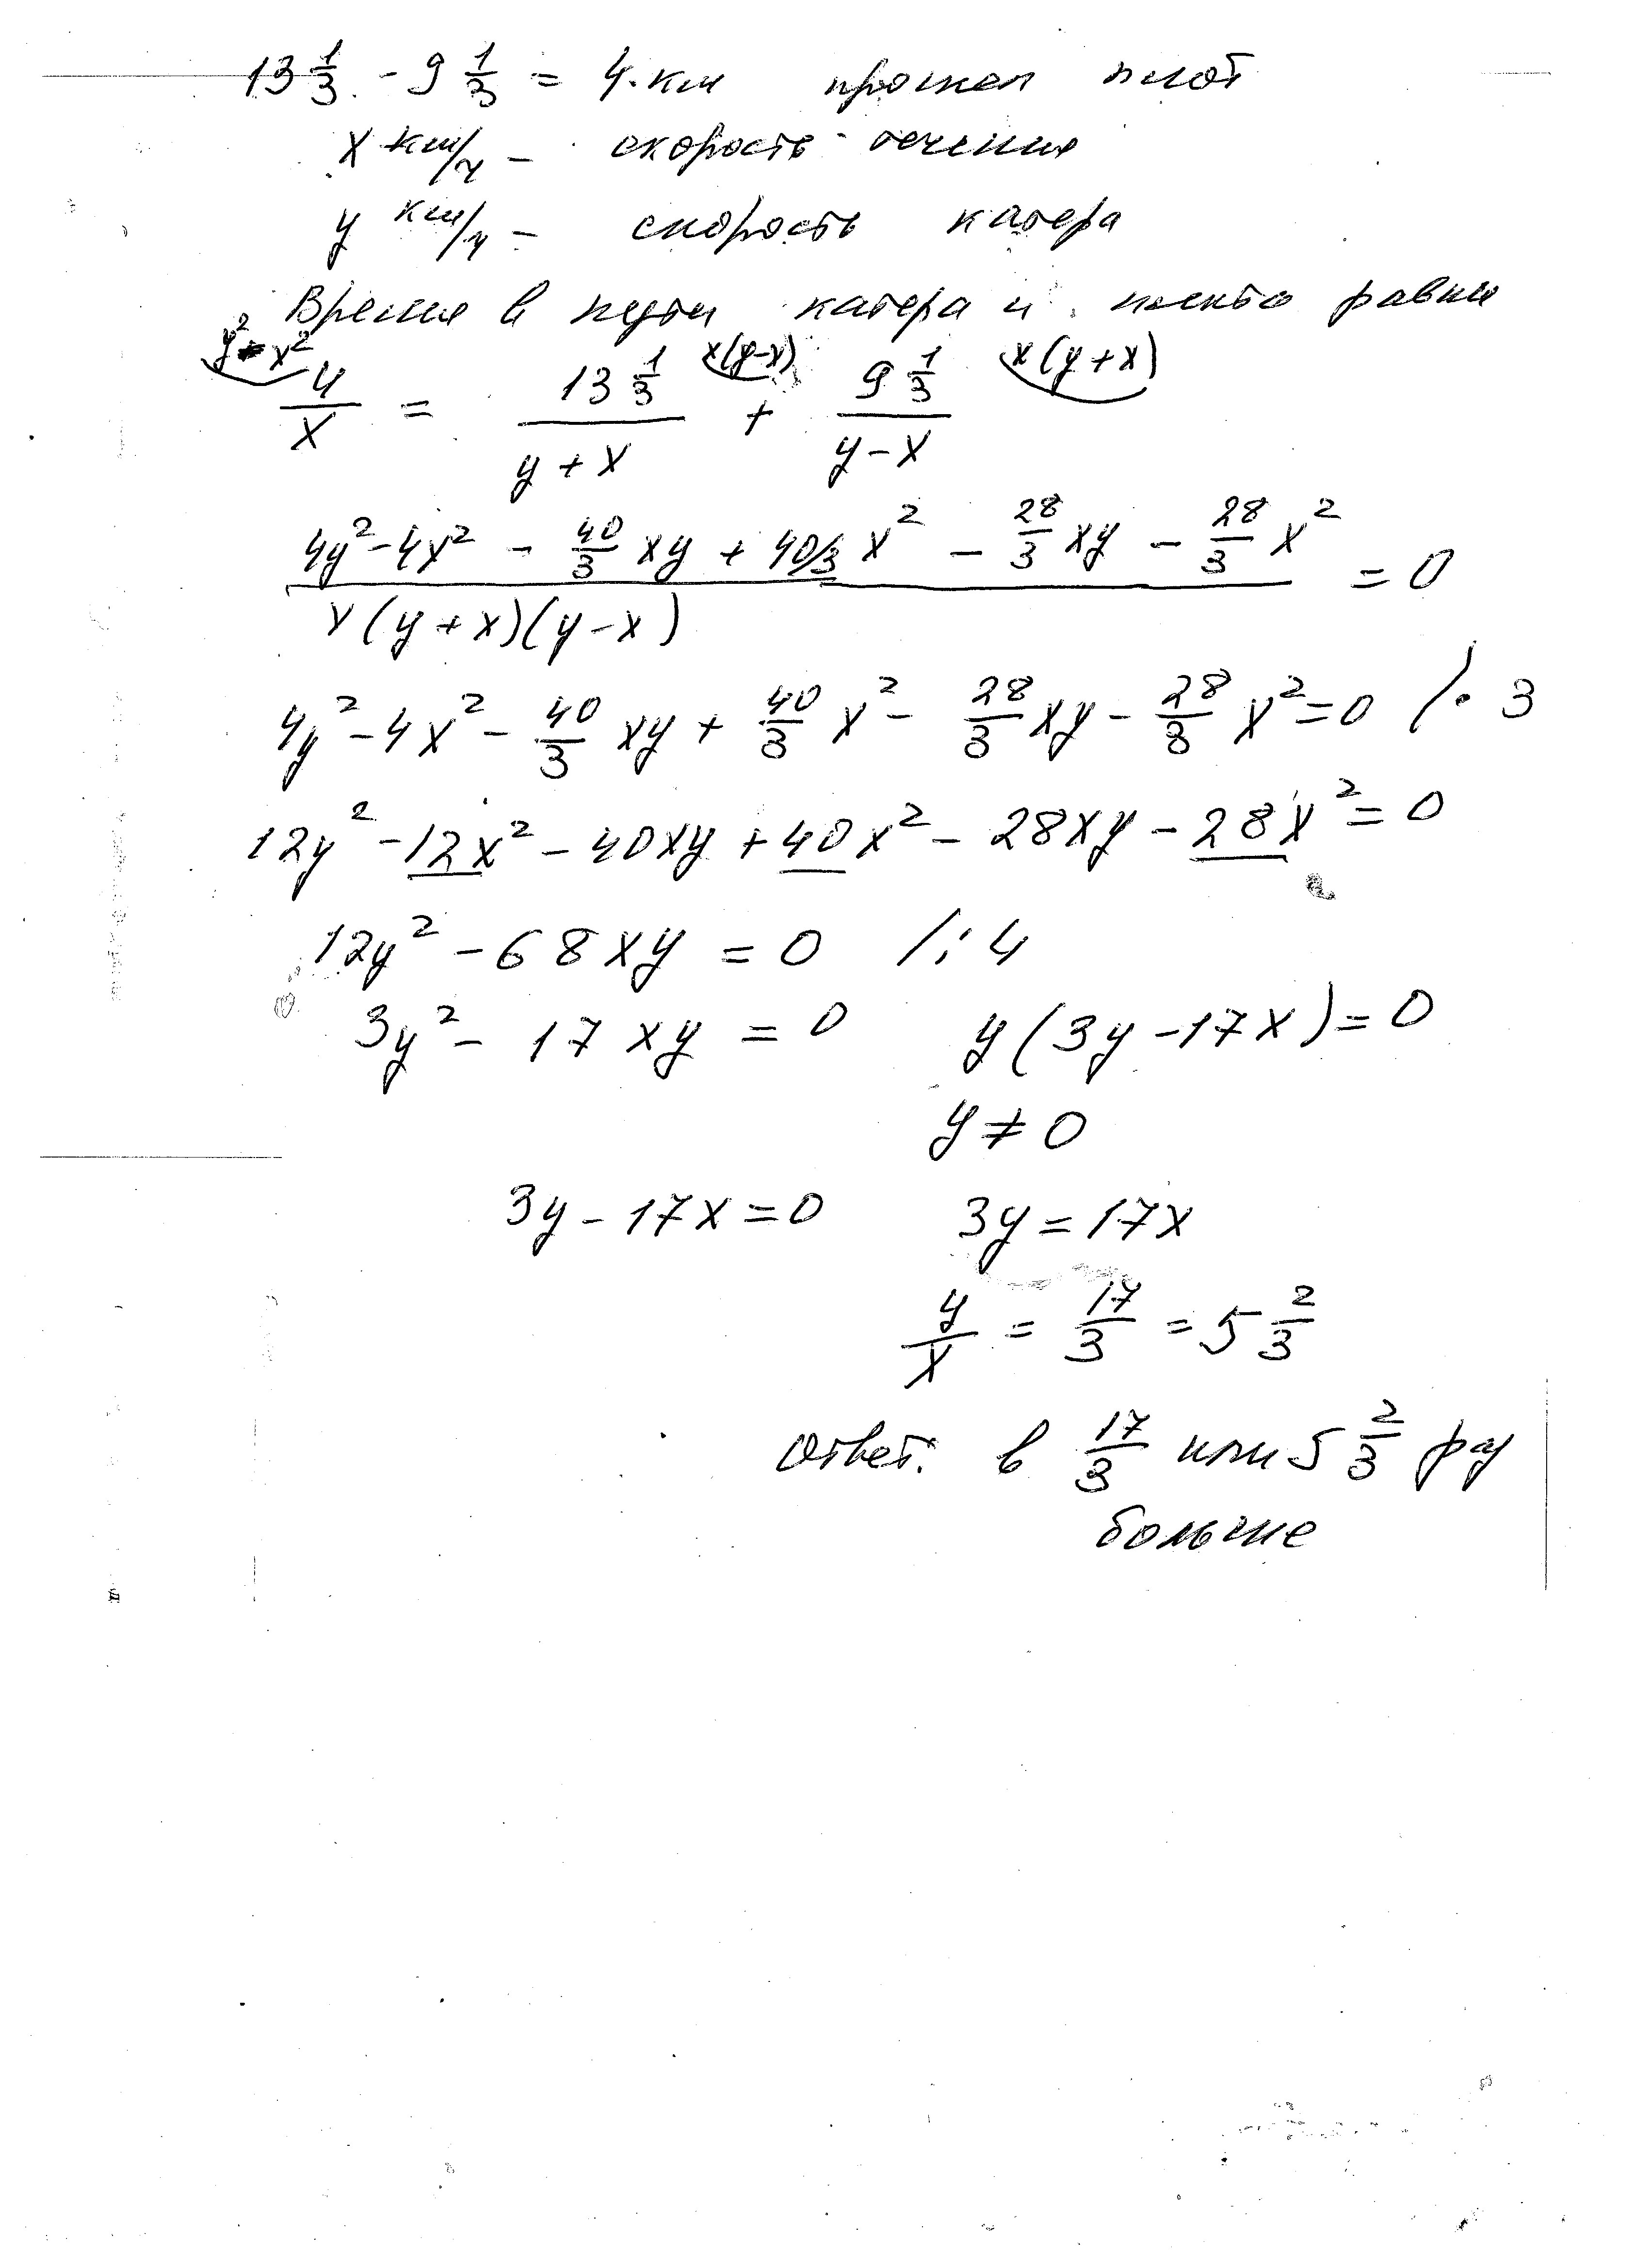 13 1/3 - 9 1/3 = 4 км прошел плот
x км/ч - скорость течения
y км/ч - скорость катера
Время в пути катера и плота равны
y²-x² x(y-x) x(y+x)
4/x = 13 1/3 / (y+x) + 9 1/3 / (y-x)
(4y²-4x² - 40/3 xy + 40/3 x² - 28/3 xy - 28/3 x²) / (x(y+x)(y-x)) = 0
4y²-4x² - 40/3 xy + 40/3 x² - 28/3 xy - 28/3 x² = 0 /·3
12y² - 12x² - 40xy + 40x² - 28xy - 28x² = 0
12y² - 68xy = 0 /:4
3y² - 17xy = 0 y(3y-17x) = 0
y ≠ 0
3y - 17x = 0 3y = 17x
y/x = 17/3 = 5 2/3
Ответ: в 17/3 или 5 2/3 раз
больше